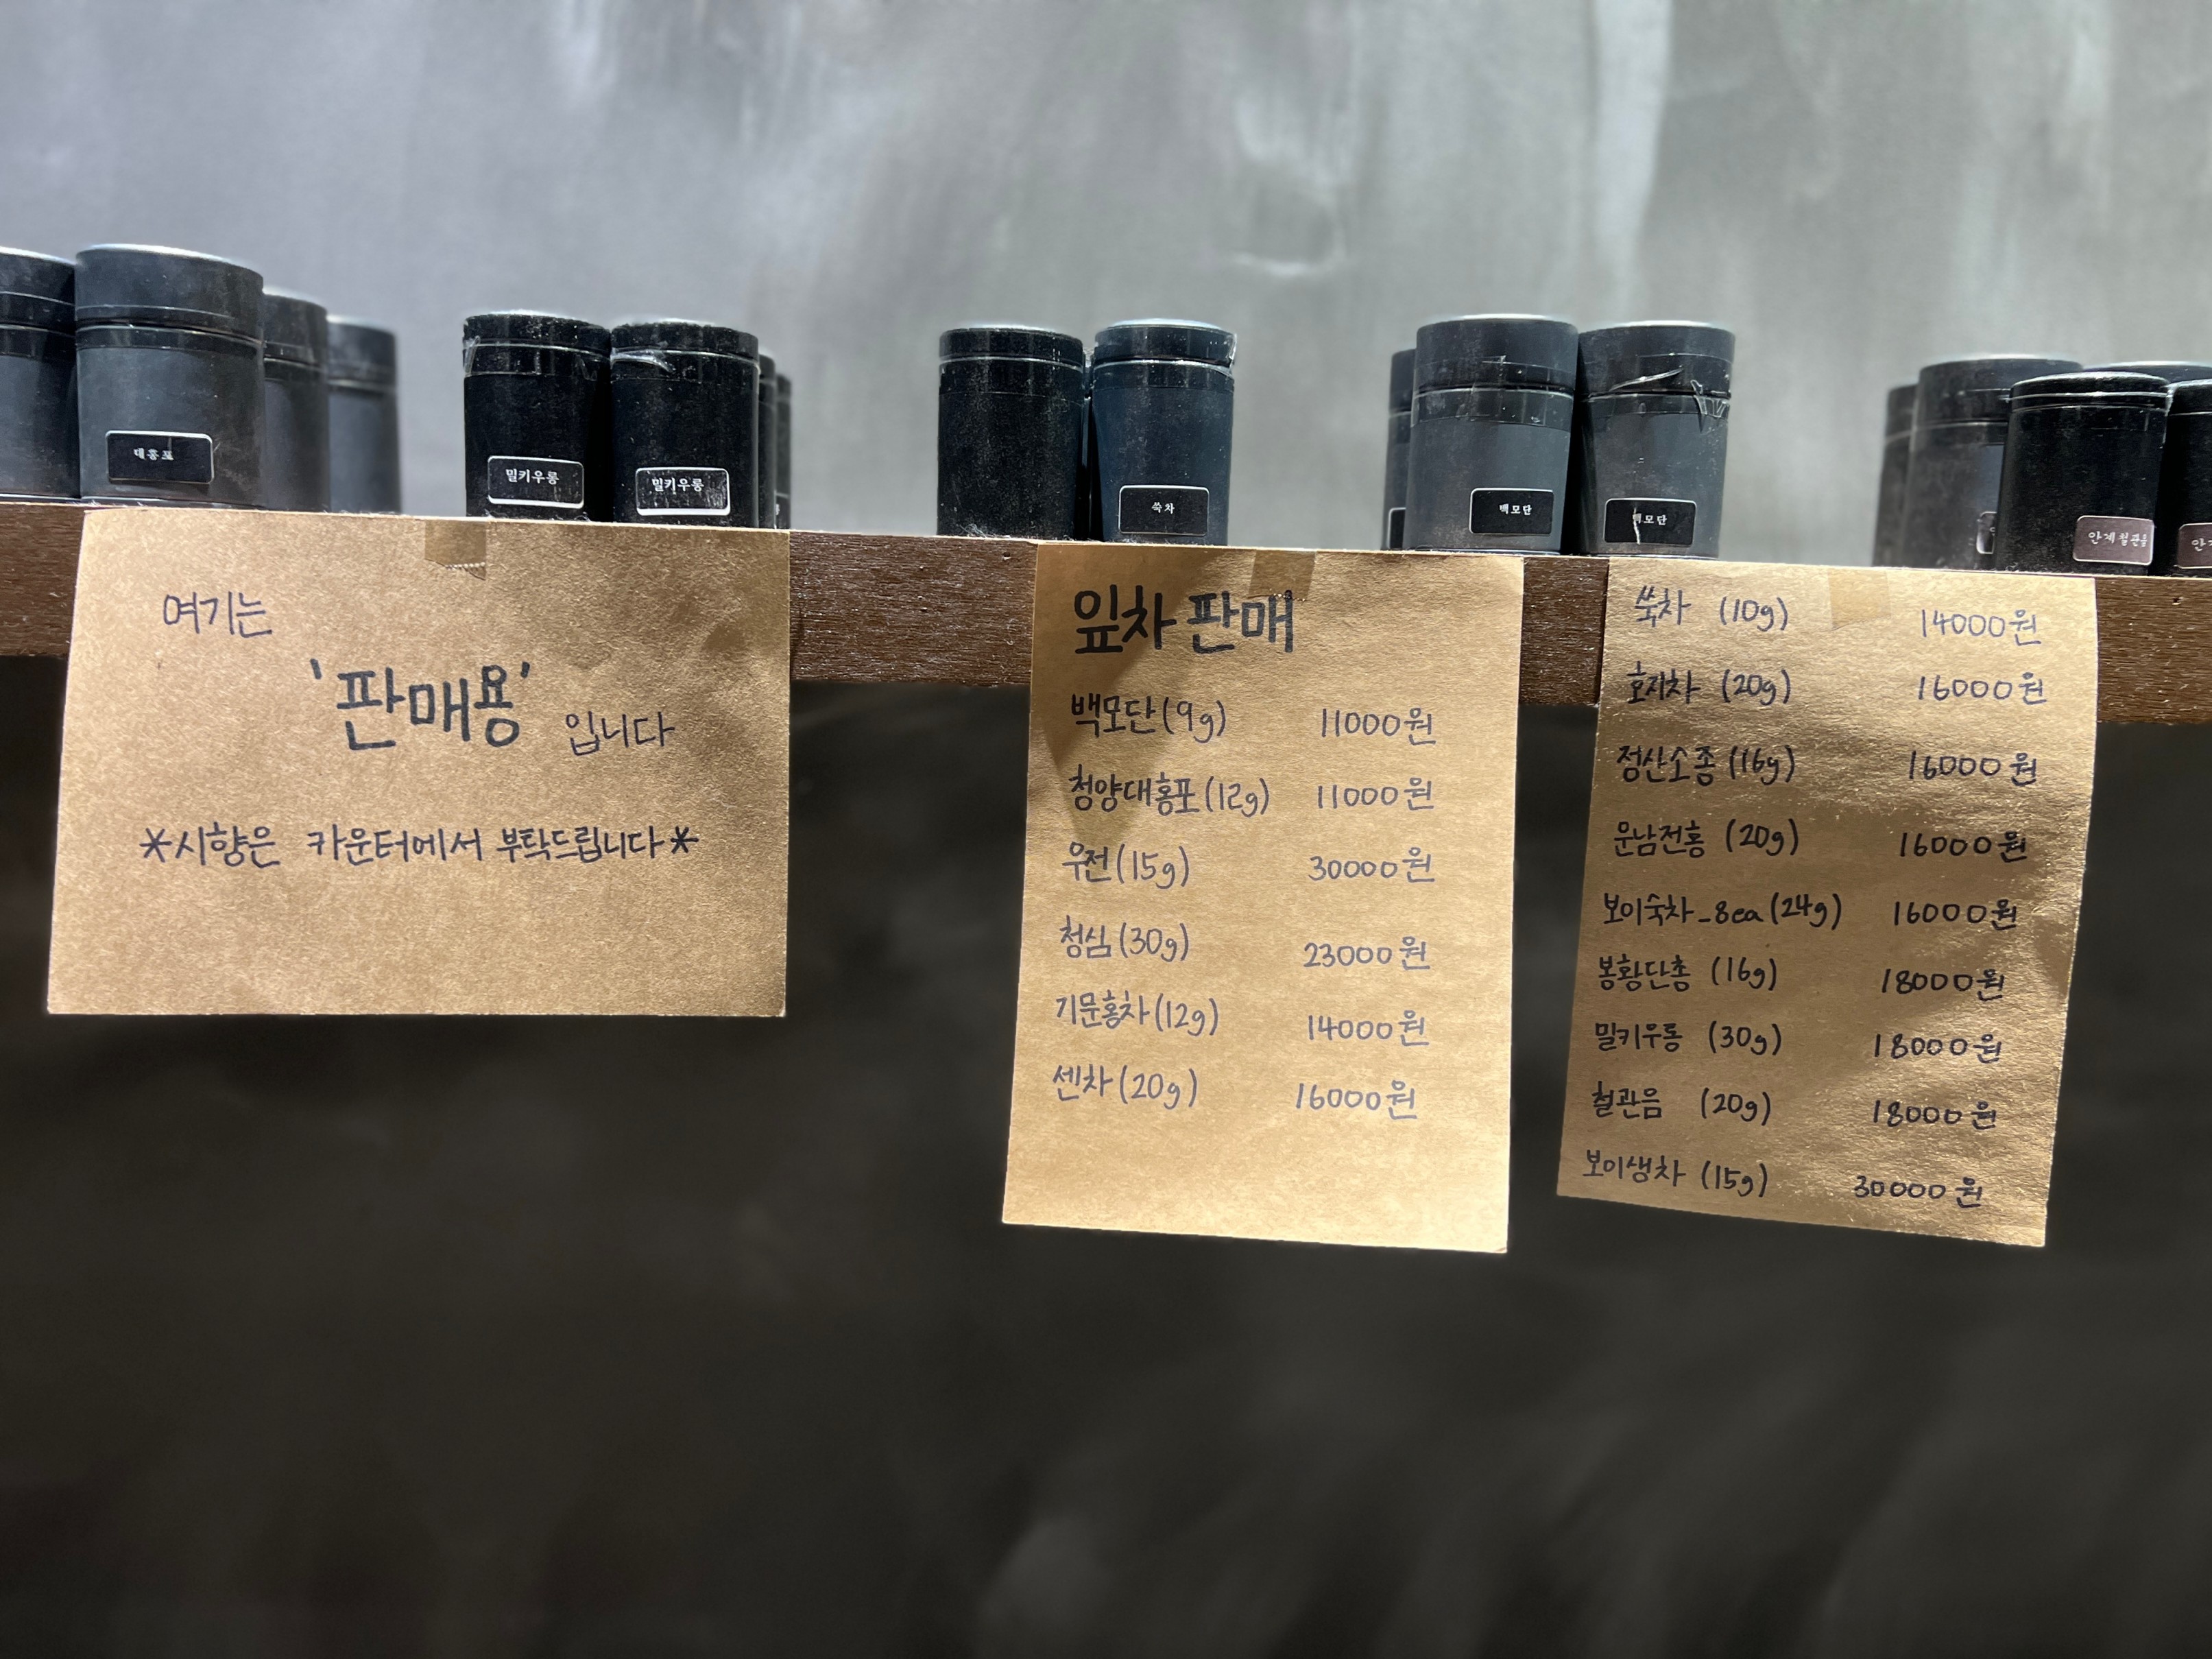 대홍포
밀키우롱
밀키우롱
쑥차
백모단
백모단
안계철관음
여기는
'판매용' 입니다
*시향은 카운터에서 부탁드립니다*
잎차 판매
백모단(9g) 11000원
청양대홍포(12g) 11000원
우전(15g) 30000원
청심(30g) 23000원
기문홍차(12g) 14000원
센차(20g) 16000원
쑥차 (10g) 14000원
호지차 (20g) 16000원
정산소종(16g) 16000원
운남전홍 (20g) 16000원
보이숙차_8ea(24g) 16000원
봉황단총 (16g) 18000원
밀키우롱 (30g) 18000원
철관음 (20g) 18000원
보이생차 (15g) 30000원